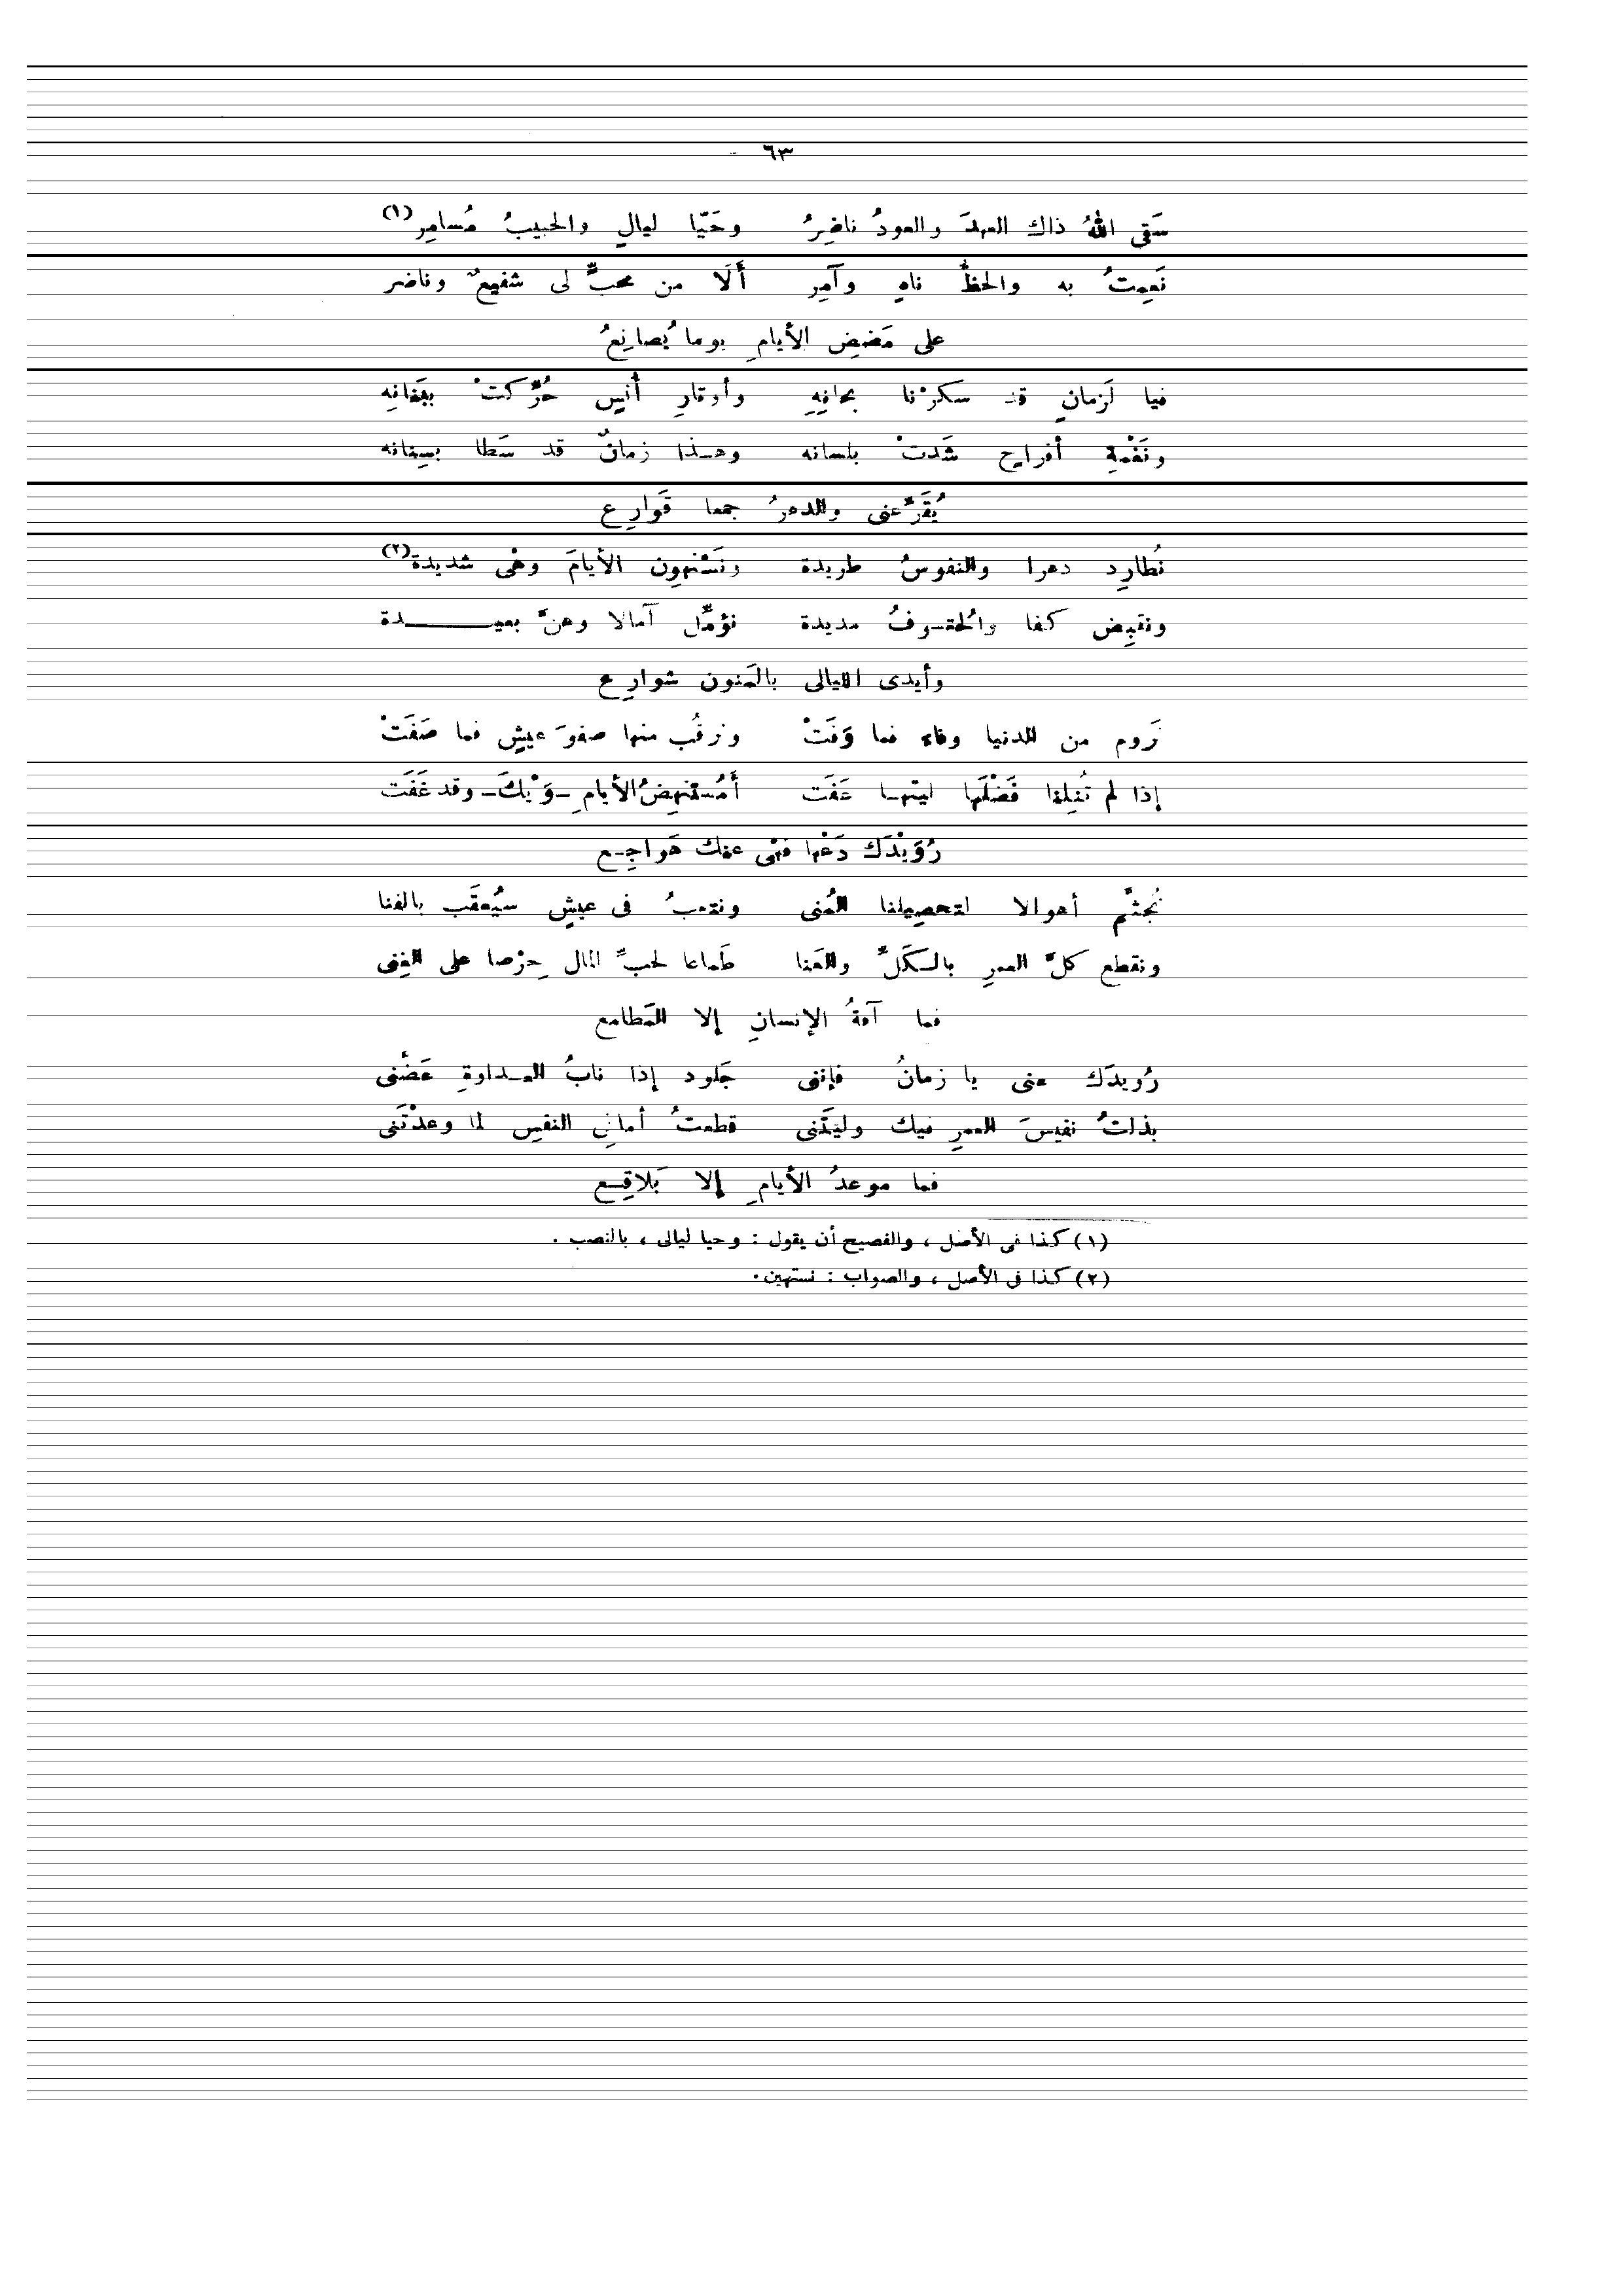 ٦٣
سَقى اللهُ ذاك العهدَ والعودُ ناضِرُ وحَيّا ليالٍ والحبيبُ مُسامِر(١)
نَعِمتُ به والحظُّ ناهٍ وآمِر أَلَا من محبٍّ لى شفيعٌ وناضر
على مَضضِ الأيامِ يوما يُصانِعُ
فيا لَزمانٍ قد سكرْنا بحانِهِ وأوتارِ أُنسٍ حُرِّكتْ ببَنانِه
ونَغْمةِ أفراحٍ شَدتْ بلسانه وهـذا زمانٌ قد سَطا بسِنانه
يُقَرِّعنى والدهرُ جمعا قَوارِع
نُطارِد دهرا والنفوسُ طريدة ونَسْتهِون الأيامَ وهْى شديدة(٢)
ونقبِض كفا والحُتـوفُ مديدة نؤمِّل آمالا وهنّ بعيـــدة
وأيدى الليالى بالمَنون شوارِع
نَروم من الدنيا وفاء فما وَفَتْ ونرقُب منها صفوَ عيشٍ فما صَفَتْ
إذا لم تُنِلنا فَضْلَها ليتهـا عَفَت أَمُستنهِضُ الأيامِ ـ وَيْبكَ ـ وقد غَفَت
رُوَيْدَك دَعْها فهْى عنك هَواجِـع
نُجثَّم أهوالا لتحصِيلنا المُنى ونتعبُ فى عيشٍ سيُعقَب بالفنا
ونقطع كلَّ العمرِ بالـكَلِّ والعَنا طَماعا لحبِّ المال حِرْصا على الغِنى
فما آفةُ الإنسانِ إلا المَطامع
رُويدَك عنى يا زمانُ فإننى جَلود إذا نابُ العـداوةِ عَضَّنى
بذلتُ نفيسَ العمرِ فيك وليتَنى قطعتُ أمانِى النفسِ لما وعدْتَنى
فما موعدُ الأيامِ إلا بَلاقِـع
(١) كذا فى الأصل ، والفصيح أن يقول : وحيا ليالى ، بالنصب .
(٢) كذا فى الأصل ، والصواب : نستهين .